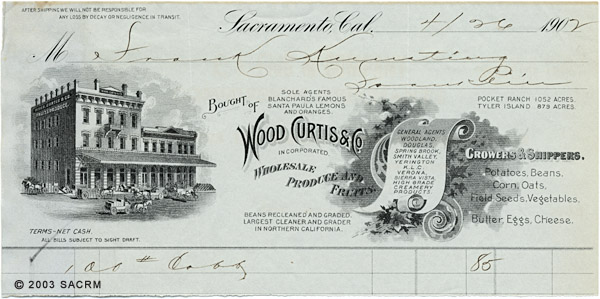 AFTER SHIPPING WE WILL NOT BE RESPONSIBLE FOR
ANY LOSS BY DECAY OR NEGLIGENCE IN TRANSIT.
Sacramento, Cal. 4/26 1902
M Frank
Bought of
SOLE AGENTS
BLANCHARDS FAMOUS
SANTA PAULA LEMONS
AND ORANGES.
WOOD CURTIS & CO
INCORPORATED
WHOLESALE
PRODUCE AND
FRUITS.
BEANS RECLEANED AND GRADED.
LARGEST CLEANER AND GRADER
IN NORTHERN CALIFORNIA.
GENERAL AGENTS
WOODLAND,
DOUGLAS,
SPRING BROOK,
SMITH VALLEY,
YERINGTON
K.L.C.
VERONA,
SIERRA VISTA
HIGH GRADE
CREAMERY
PRODUCTS.
POCKET RANCH 1052 ACRES.
TYLER ISLAND 879 ACRES.
GROWERS & SHIPPERS.
Potatoes, Beans,
Corn, Oats,
Field Seeds, Vegetables,
Butter, Eggs, Cheese.
TERMS-NET CASH.
ALL BILLS SUBJECT TO SIGHT DRAFT.
100 # 85
© 2003 SACRM